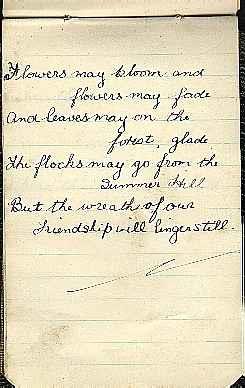 Flowers may bloom and
flowers may fade
And leaves may on the
forest, glade
The flocks may go from the
Summer Hill
But the wreath of our
friendship will linger still.